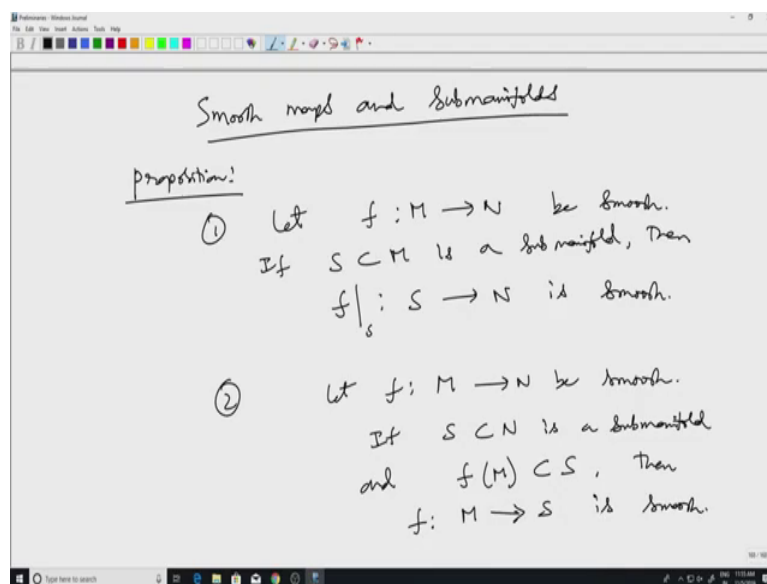 Preliminaries - Windows Journal
File Edit View Insert Actions Tools Help
Smooth maps and Submanifolds
Proposition:
① Let f : M → N be smooth.
If S ⊂ M is a submanifold, Then
f|_S : S → N is smooth.
② Let f : M → N be smooth.
If S ⊂ N is a submanifold
and f(M) ⊂ S, then
f : M → S is smooth.
Type here to search
ENG 11:05 AM